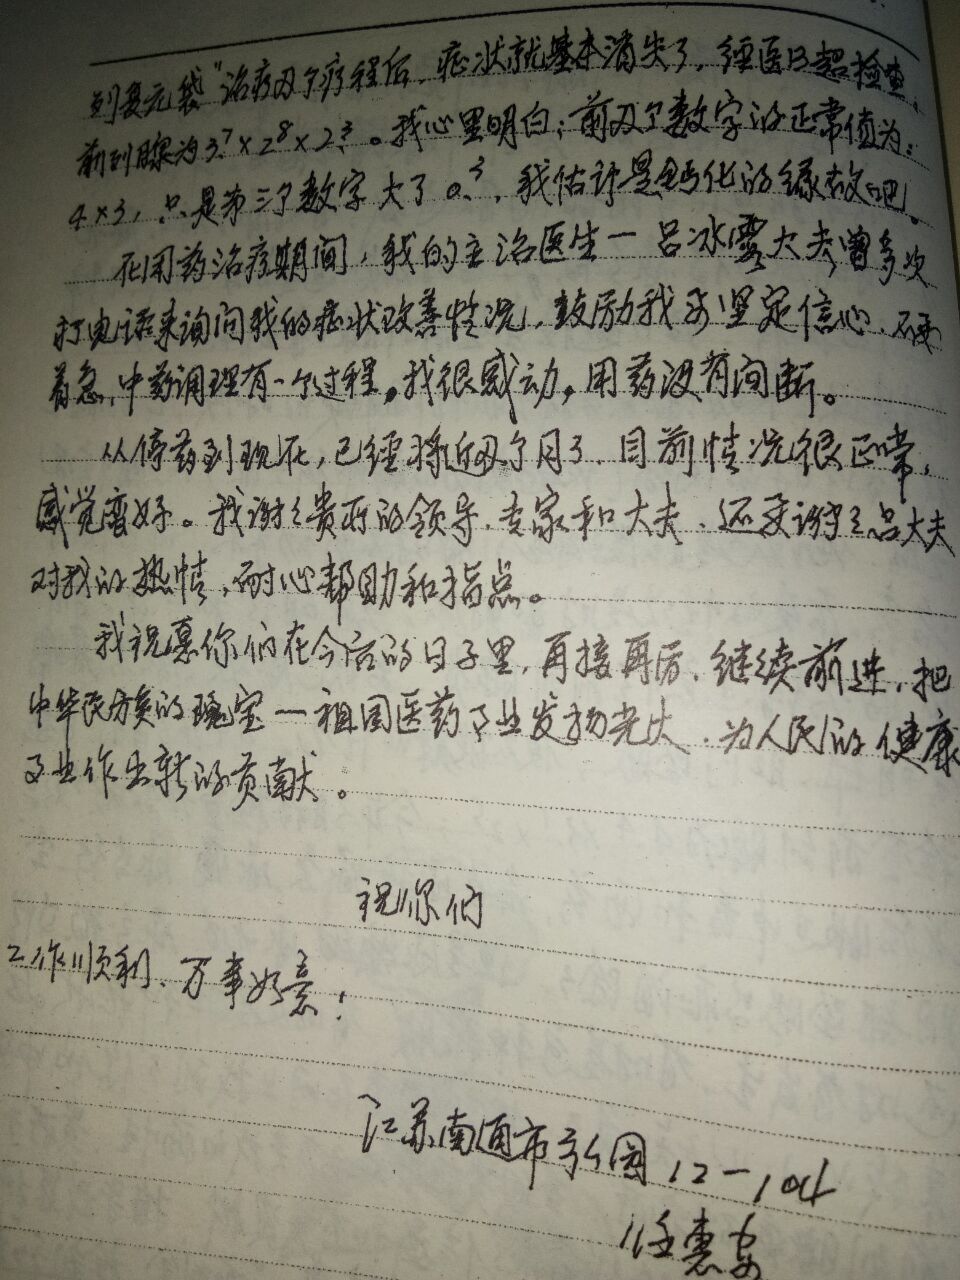 列复元袋"治疗两个疗程后,症状就基本消失了,经医B超检查,
前列腺为3.7×2.8×2.3。我心里明白,前两个数字的正常值为:
4×3,只是第三个数字大了0.3,我估计是钙化的缘故吧。
在用药治疗期间,我的主治医生一吕冰霞大夫曾多次
打电话来询问我的症状改善情况,鼓励我要坚定信心,不要
着急,中药调理有一个过程。我很感动,用药没有间断。
从停药到现在,已经将近两个月了,目前情况很正常,
感觉蛮好。我谢谢贵所的领导、专家和大夫,还要谢谢吕大夫
对我的热情,耐心帮助和指点。
我祝愿你们在今后的日子里,再接再厉,继续前进,把
中华民族的瑰宝一祖国医药事业发扬光大,为人民的健康
事业作出新的贡献。
祝你们
工作顺利、万事如意!
江苏南通市 园12-104
任惠